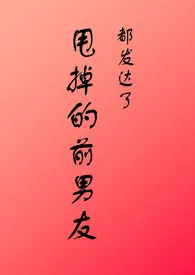 甩掉的前男友
都发达了